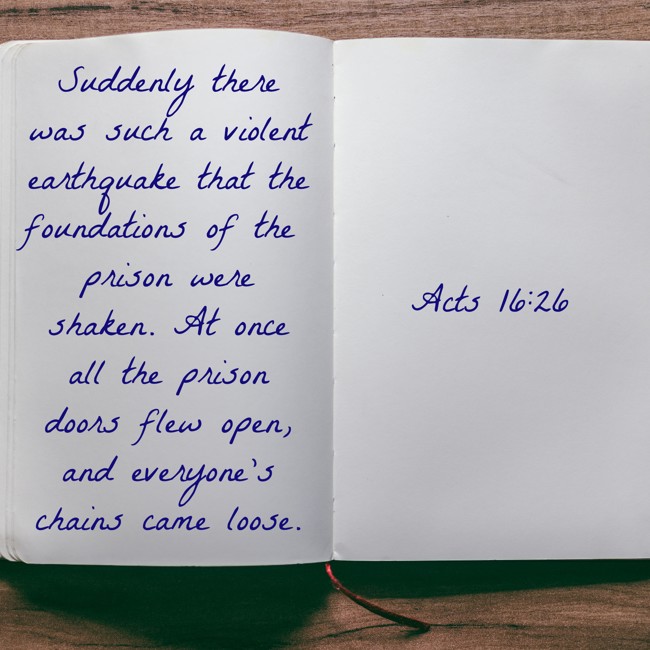 Suddenly there
was such a violent
earthquake that the
foundations of the
prison were
shaken. At once
all the prison
doors flew open,
and everyone's
chains came loose.
Acts 16:26